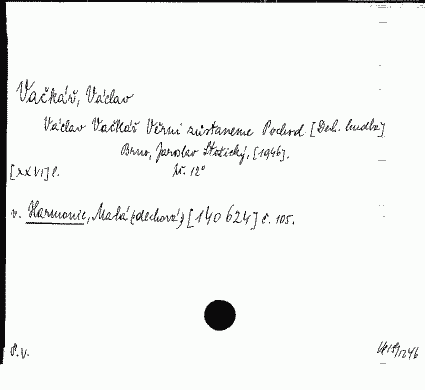 Vačkář, Václav
Václav Vačkář Věrni zůstaneme Pochod. [Dech. hudba]
Brno, Jaroslav Stožický, [1946].
[XXVI] l. 12°
v. Harmonie, Malá (dechová) [140624] č. 105.
P.V.